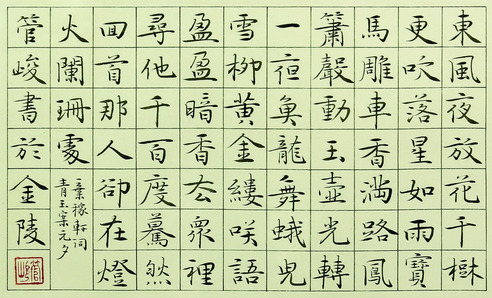 東風夜放花千樹
更吹落星如雨寶
馬雕車香滿路鳳
簫聲動玉壺光轉
一亱魚龍舞蛾兒
雪柳黃金縷咲語
盈盈暗香厺衆裡
尋他千百度驀然
囬首那人卻在燈
火闌珊處
辛稼軒詞
青玉案元夕
管峻書於金陵